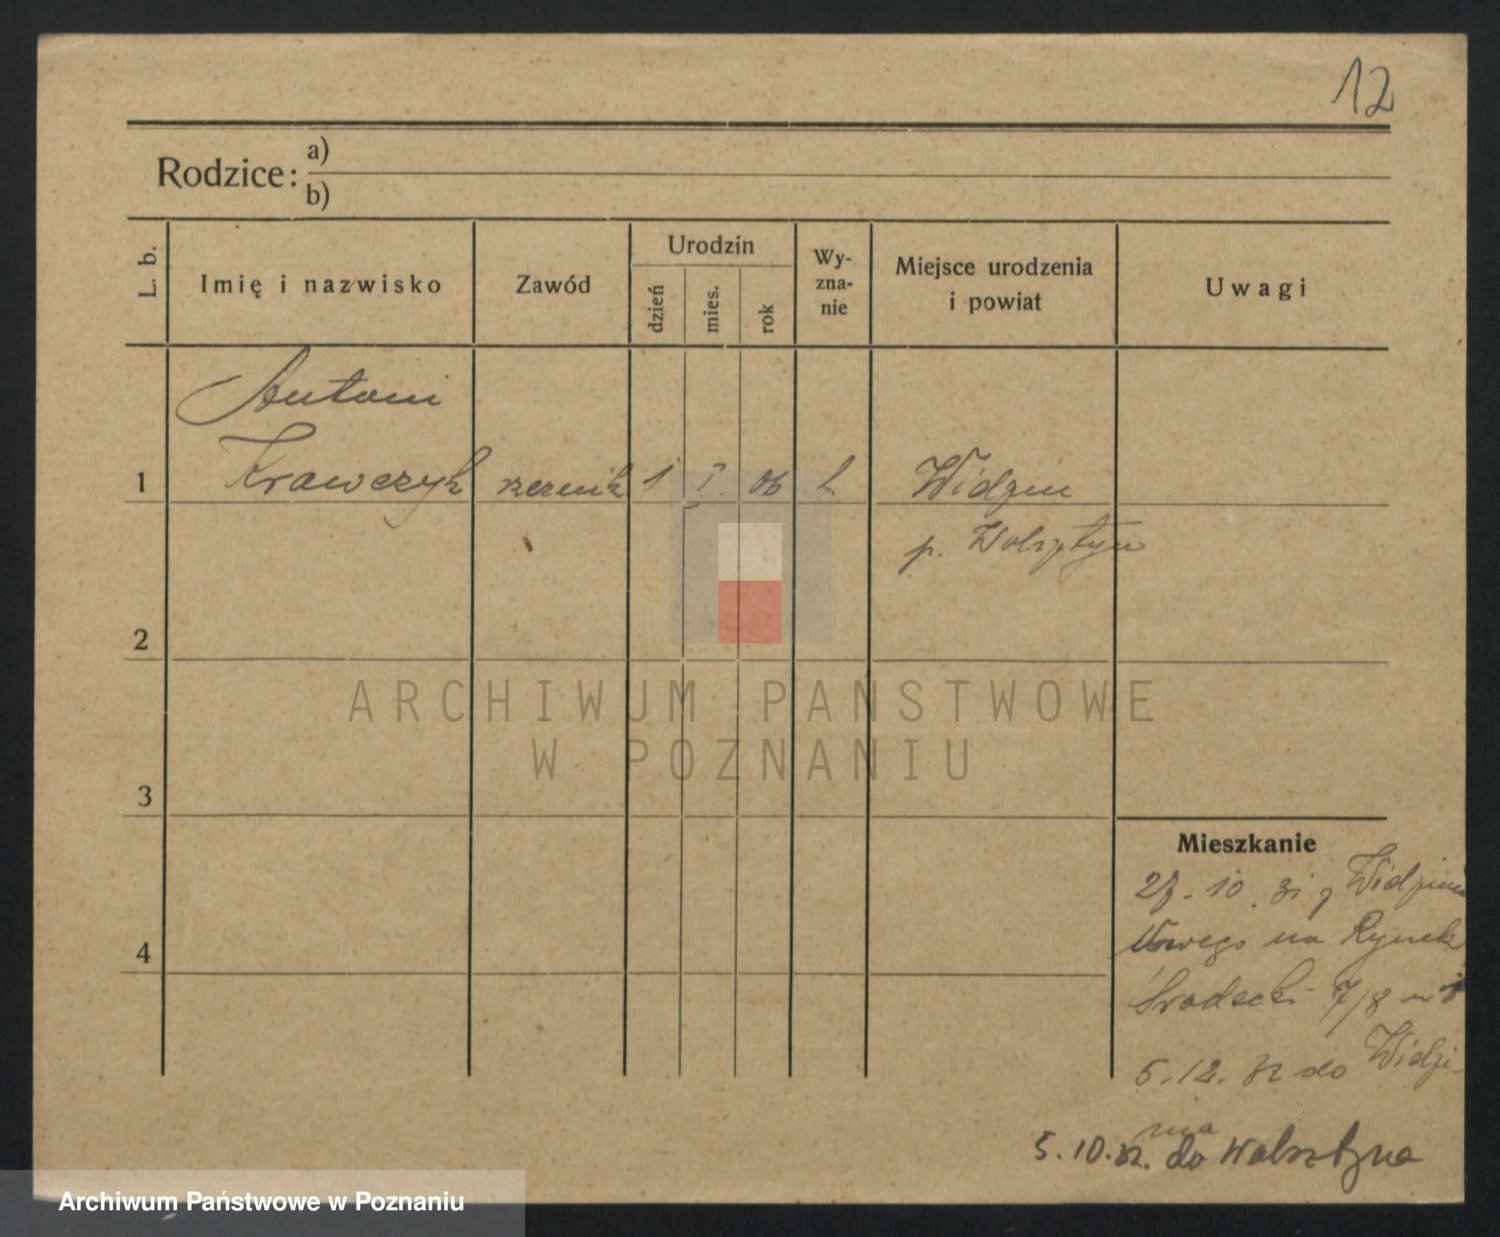 12
Rodzice: a)
b)
L. b.
Imię i nazwisko
Zawód
Urodzin
dzień
mies.
rok
Wy-
zna-
nie
Miejsce urodzenia
i powiat
Uwagi
Antoni
1 Krawczyk rzeźnik 1 06 Widzim
p. Wolsztyn
2
ARCHIWUM PAŃSTWOWE
W POZNANIU
3
4
Mieszkanie
27. 10. 31 z Widzima
Nowego na Rynek
Śródecki 7/8
5. 12. 32 do Widzi-
mia
5. 10. 32. do Wolsztyna
Archiwum Państwowe w Poznaniu